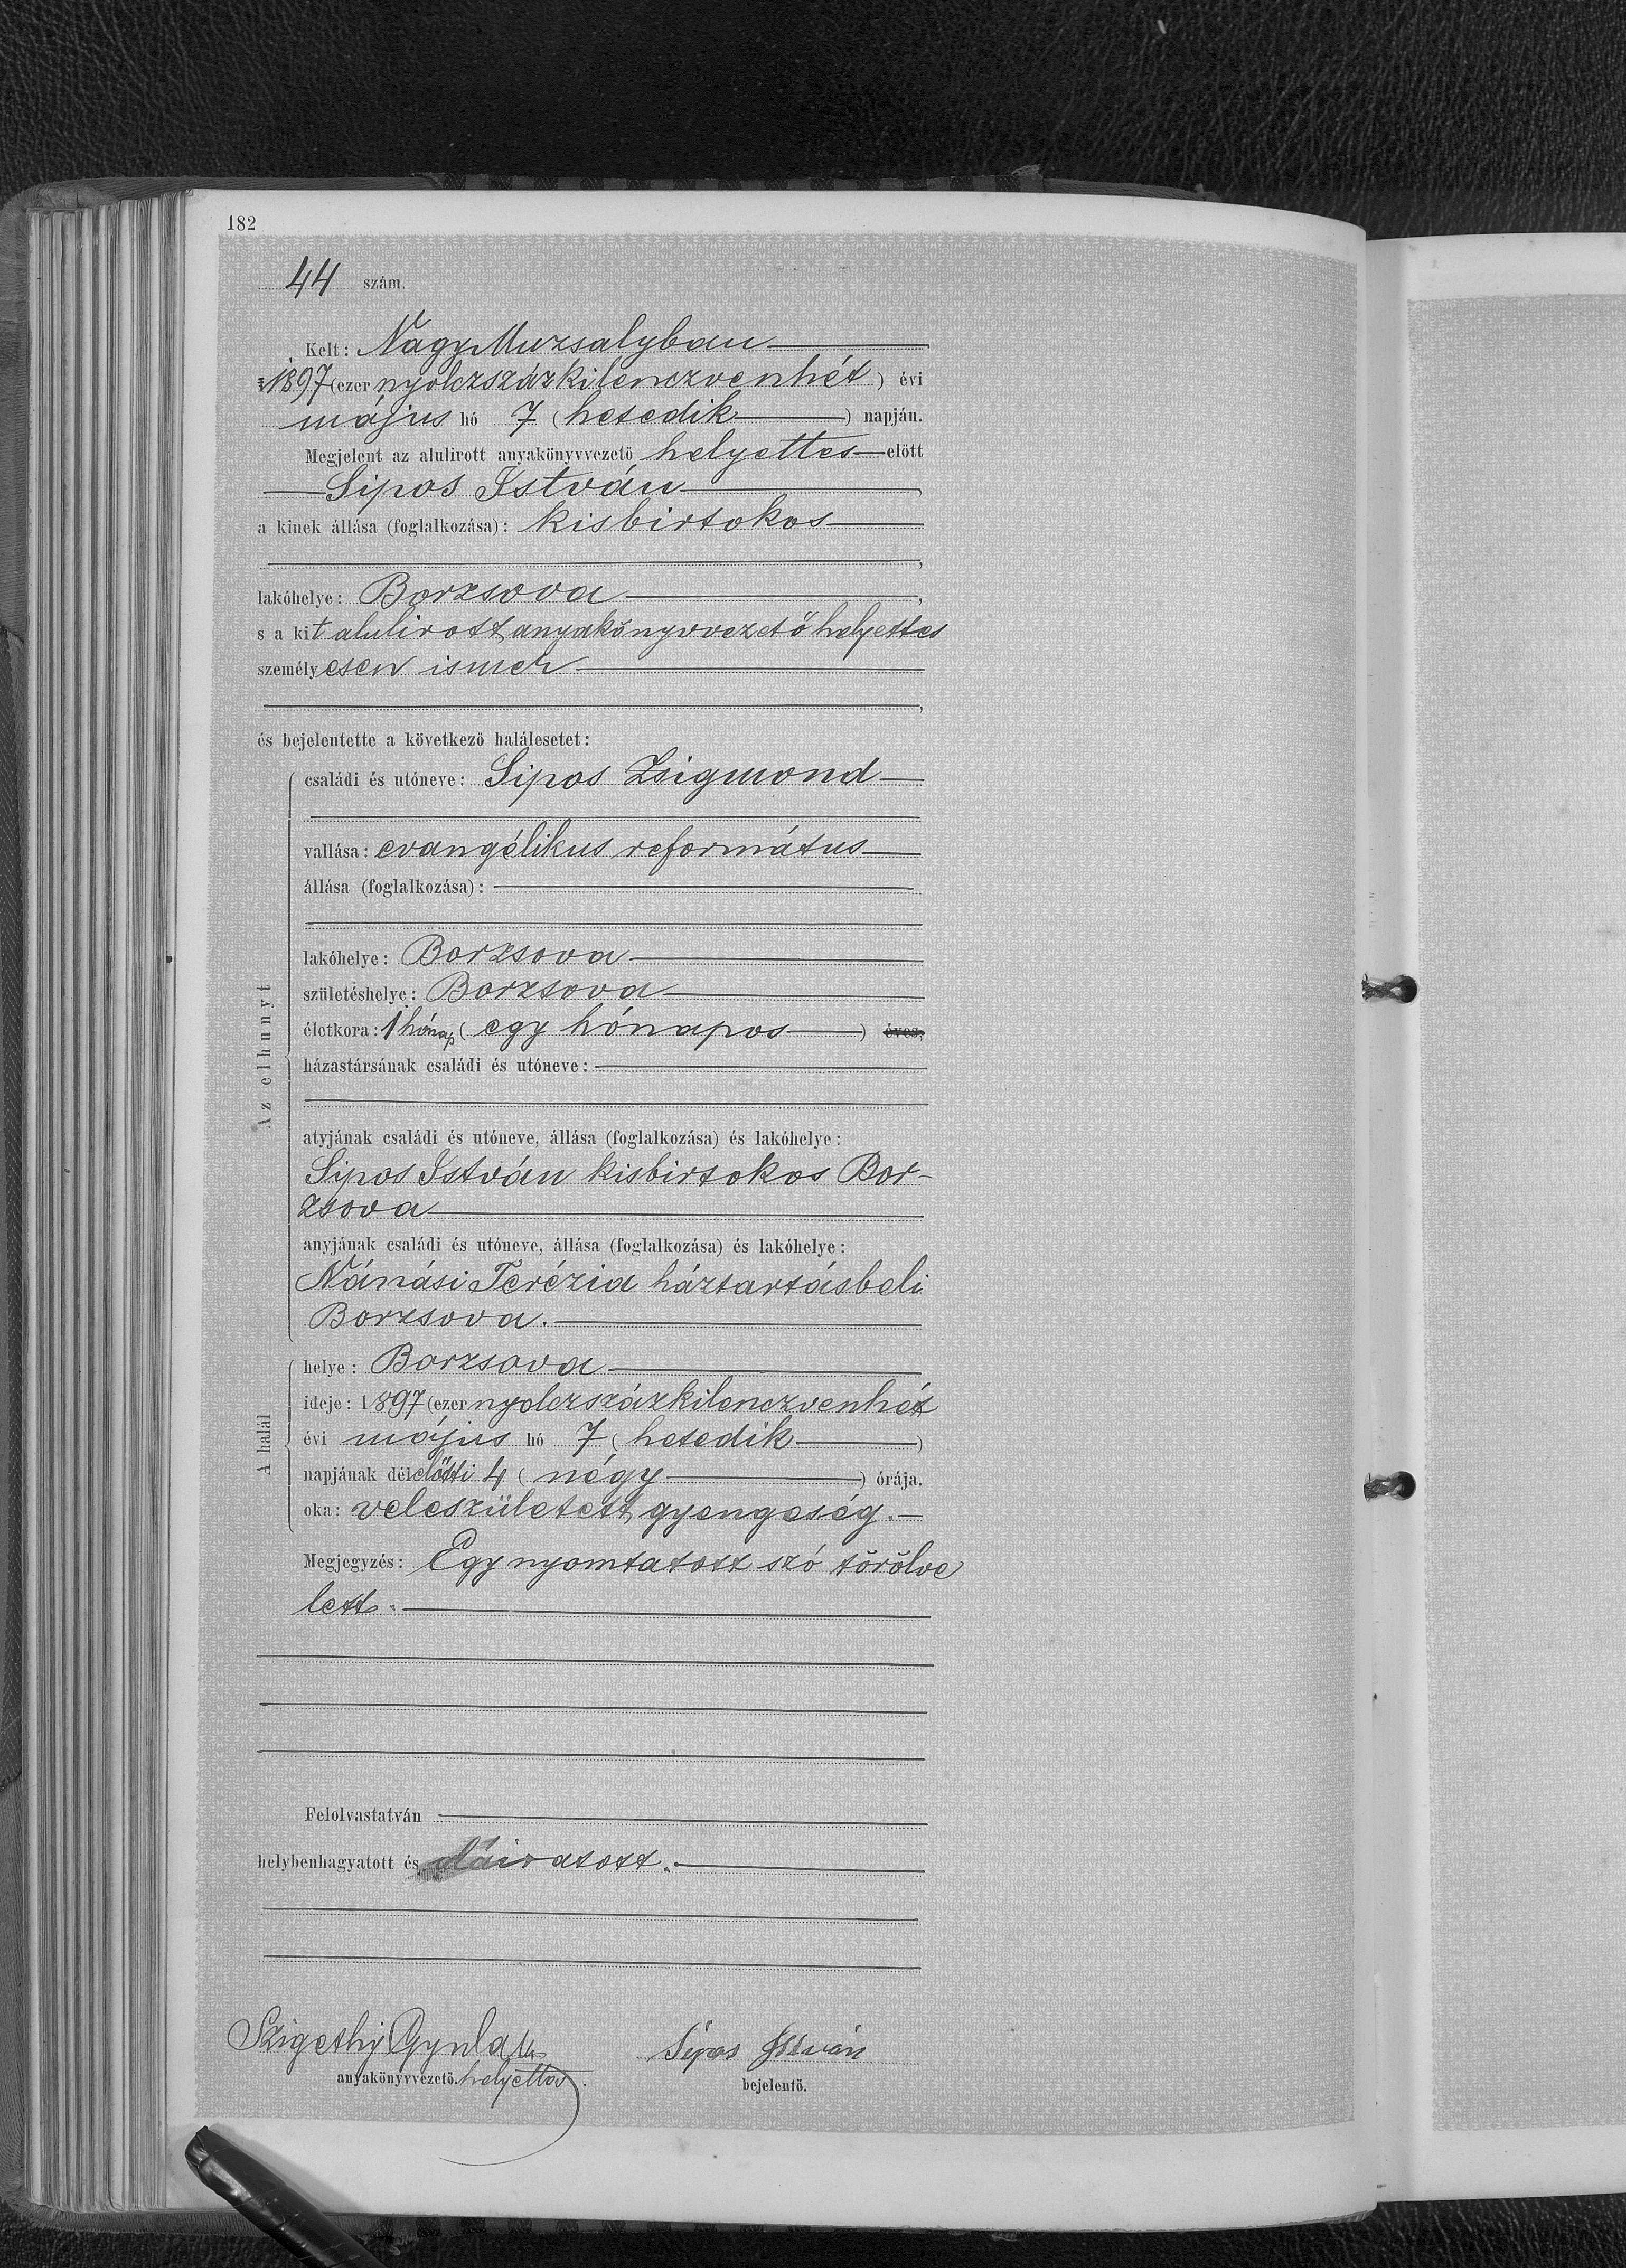 182
44 szám.
Kelt: NagyMuzsalyban
1897 (ezer nyolczszázkilenczvenhét) évi
május hó 7 (hetedik) napján.
Megjelent az alulirott anyakönyvvezető helyettes előtt
Sipos István,
a kinek állása (foglalkozása): kisbirtokos
,
lakóhelye: Borzsova,
s a kit alulirott anyakönyvvezető helyettes
személyesen ismer
,
és bejelentette a következő halálesetet:
Az elhunyt
családi és utóneve: Sipos Zsigmond
vallása: evangélikus református
állása (foglalkozása):
lakóhelye: Borzsova
születéshelye: Borzsova
életkora: 1 hónap (egy hónapos) éves,
házastársának családi és utóneve:
atyjának családi és utóneve, állása (foglalkozása) és lakóhelye:
Sipos István kisbirtokos Bor-
zsova
anyjának családi és utóneve, állása (foglalkozása) és lakóhelye:
Nánási Terézia háztartásbeli
Borzsova.
A halál
helye: Borzsova
ideje: 1897 (ezer nyolczszázkilenczvenhét
évi május hó 7 (hetedik)
napjának délelőtti 4 (négy) órája.
oka: veleszületett gyengeség.
Megjegyzés: Egy nyomtatott szó törölve
lett.
Felolvastatván
helybenhagyatott és aláiratott.
Szigethy Gyula
Sipos István
anyakönyvvezető. helyettes
bejelentő.